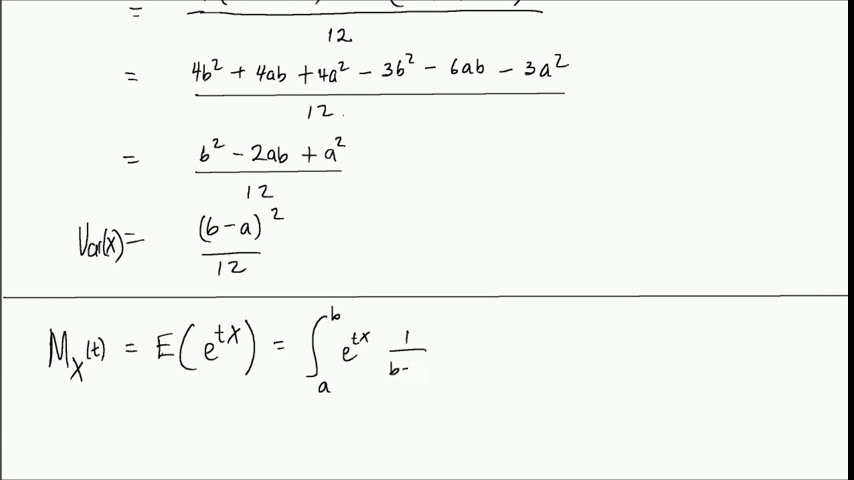 =
12
= 4b² + 4ab + 4a² - 3b² - 6ab - 3a²
12
= b² - 2ab + a²
12
Var(X) = (b-a)²
12
M_X(t) = E(e^{tX}) = ∫_a^b e^{tx} 1
b-